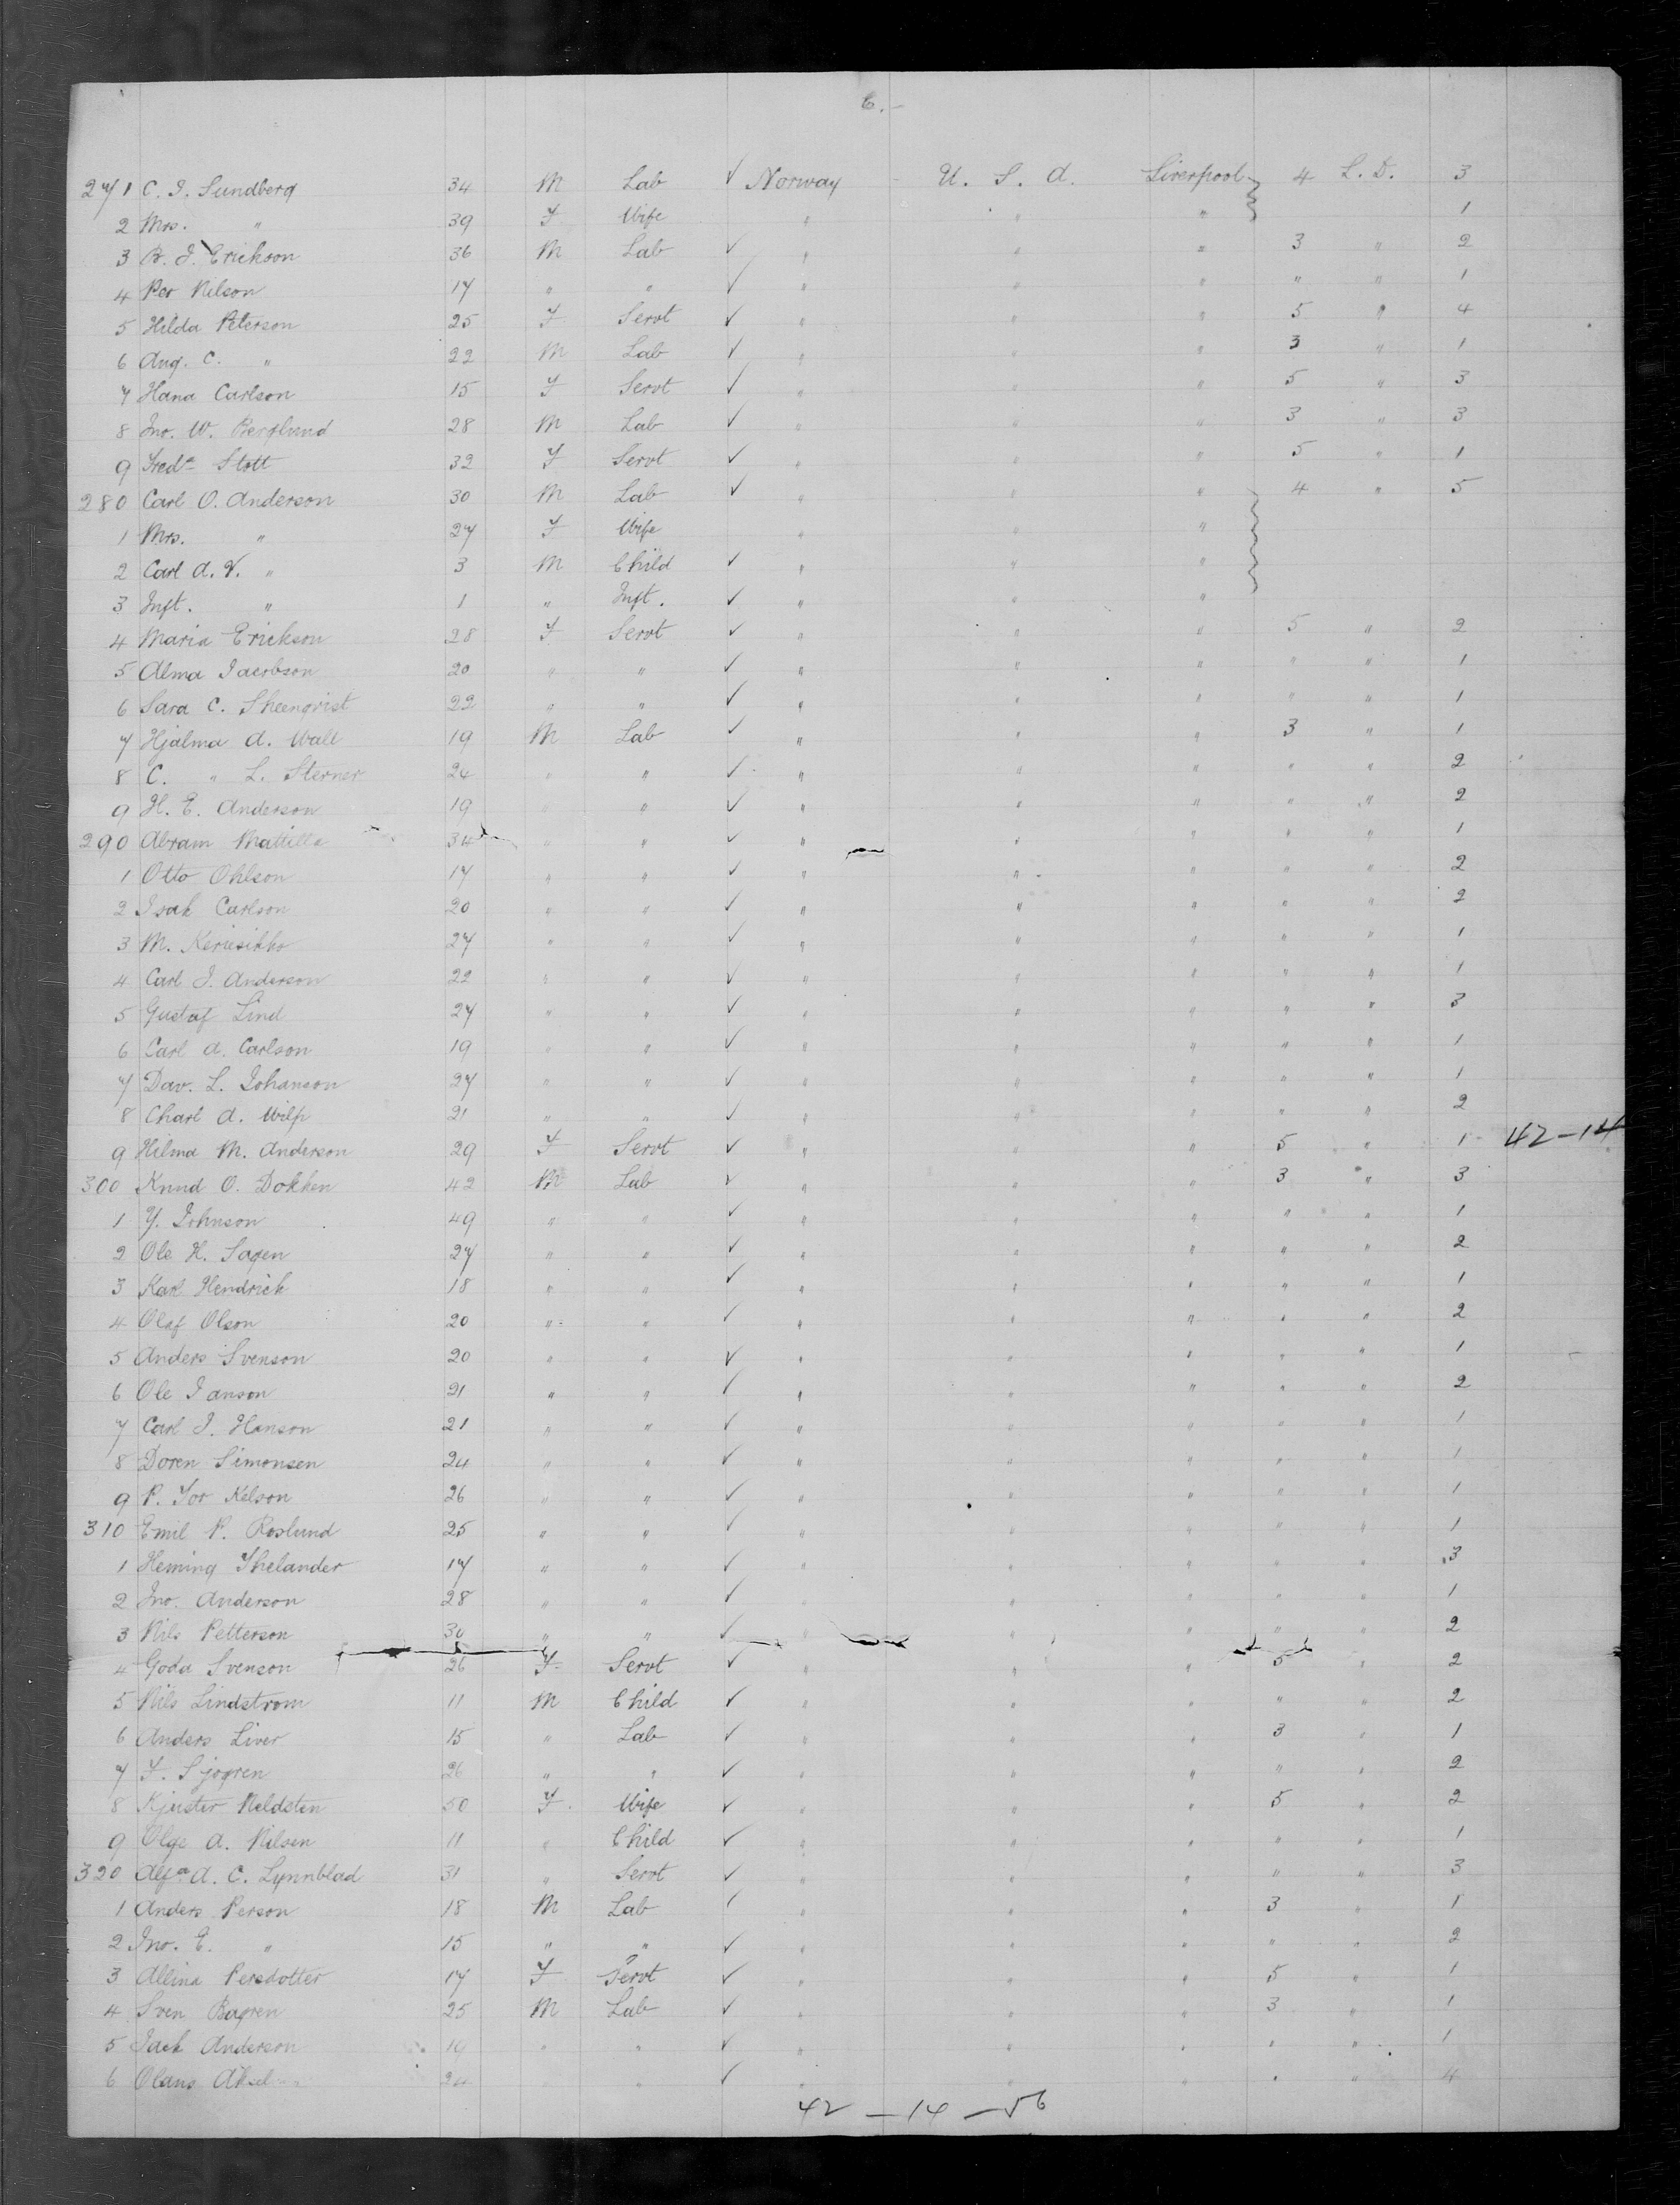 6.-
271 C. I. Sundberg 34 M Lab ✓ Norway U. S. A. Liverpool 4 L. D. 3
2 Mrs. " 39 F Wife " " " 1
3 B. J. Erickson 36 M Lab ✓ " " " 3 " 2
4 Per Nilson 17 " " ✓ " " " " " 1
5 Hilda Peterson 25 F Servt ✓ " " " 5 " 4
6 Aug. C. " 22 M Lab ✓ " " " 3 " 1
7 Hana Carlson 15 F Servt ✓ " " " 5 " 3
8 Jno. W. Berglund 28 M Lab ✓ " " " 3 " 3
9 Freda Stott 32 F Servt ✓ " " " 5 " 1
280 Carl O. Anderson 30 M Lab ✓ " " " 4 " 5
1 Mrs. " 27 F Wife " " "
2 Carl A. V. " 3 M Child ✓ " " "
3 Inft. " 1 " Inft. ✓ " " "
4 Maria Erickson 28 F Servt ✓ " " " 5 " 2
5 Alma Jacobson 20 " " ✓ " " " " " 1
6 Sara C. Sheenqvist 22 " " ✓ " " " " " 1
7 Hjalma A. Wall 19 M Lab ✓ " " " 3 " 1
8 C. " L. Sterner 24 " " ✓ " " " " " 2
9 H. E. Anderson 19 " " ✓ " " " " " 2
290 Abram Mattilla 34 " " ✓ " " " " " 1
1 Otto Ohlson 17 " " ✓ " " " " " 2
2 Isak Carlson 20 " " ✓ " " " " " 2
3 M. 27 " " ✓ " " " " " 1
4 Carl J. Anderson 22 " " ✓ " " " " " 1
5 Gustaf Lind 27 " " ✓ " " " " " 3
6 Carl A. Carlson 19 " " ✓ " " " " " 1
7 Dav. L. Johanson 27 " " ✓ " " " " " 1
8 Charl A. Wilp 21 " " ✓ " " " " " 2
9 Hilma M. Anderson 29 F Servt ✓ " " " 5 " 1 42-14
300 Knud O. Dokken 42 M Lab ✓ " " " 3 " 3
1 Y. Johnson 49 " " ✓ " " " " " 1
2 Ole H. Sagen 27 " " ✓ " " " " " 2
3 Karl Hendrick 18 " " ✓ " " " " " 1
4 Olaf Olson 20 " " ✓ " " " " " 2
5 Anders Svenson 20 " " ✓ " " " " " 1
6 Ole Janson 21 " " ✓ " " " " " 2
7 Carl J. Hanson 21 " " ✓ " " " " " 1
8 Doren Simonsen 24 " " ✓ " " " " " 1
9 P. Tor Kelson 26 " " ✓ " " " " " 1
310 Emil P. Roslund 25 " " ✓ " " " " " 1
1 Heming Thelander 17 " " ✓ " " " " " 3
2 Jno. Anderson 28 " " ✓ " " " " " 1
3 Nils Petterson 30 " " ✓ " " " " " 2
4 Goda Svenson 26 F Servt ✓ " " " 5 " 2
5 Nils Lindstrom 11 M Child ✓ " " " " " 2
6 Anders Liver 15 " Lab ✓ " " " 3 " 1
7 F. Sjogren 26 " " ✓ " " " " " 2
8 Kjuster Neldsten 50 F Wife ✓ " " " 5 " 2
9 Olge A. Nilsen 11 " Child ✓ " " " " " 1
320 Alfa A. C. Lynnblad 31 " Servt ✓ " " " " " 3
1 Anders Person 18 M Lab ✓ " " " 3 " 1
2 Jno. E. " 15 " " ✓ " " " " " 2
3 Allina Persdotter 17 F Servt ✓ " " " 5 " 1
4 Sven Bagren 25 M Lab ✓ " " " 3 " 1
5 Jack Anderson 19 " " ✓ " " " " " 1
6 Olaus 24 " " ✓ " " " " " 4
42 - 14 - 56